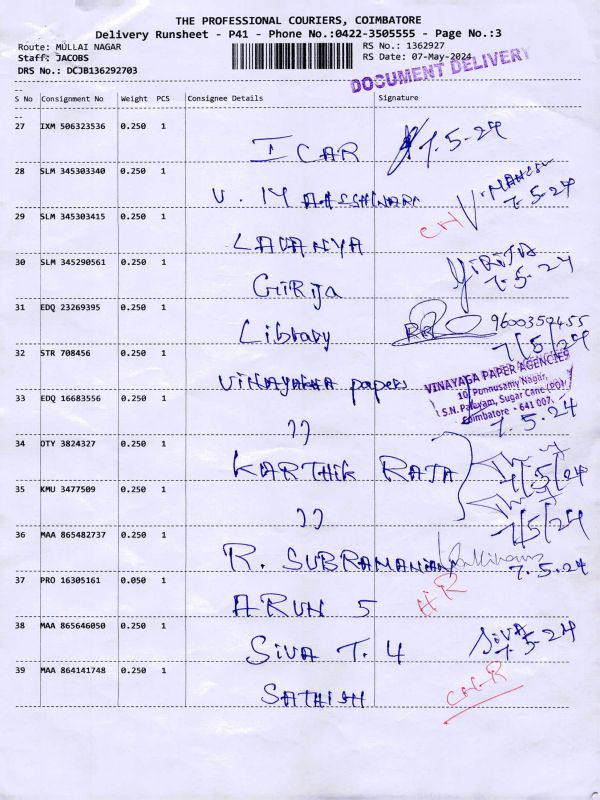 THE PROFESSIONAL COURIERS, COIMBATORE
Delivery Runsheet - P41 - Phone No.:0422-3505555 - Page No.:3
Route: MULLAI NAGAR
RS No.: 1362927
Staff: JACOBS
RS Date: 07-May-2024
DRS No.: DCJB136292703
DOCUMENT DELIVERY
S No Consignment No Weight PCS Consignee Details Signature
27 IXM 506323536 0.250 1
ICAR 7.5-24
28 SLM 345303340 0.250 1
7.5-24
29 SLM 345303415 0.250 1
LAVANYA
30 SLM 345290561 0.250 1
GiRija 7.5-24
31 EDQ 23269395 0.250 1
Library 9600352455
7/5/24
32 STR 708456 0.250 1
papers
VINAYAGA PAPER AGENCIES
10, Ponnusamy Nagar,
S.N. Palayam, Sugar Cane (PO)
Coimbatore - 641 007.
33 EDQ 16683556 0.250 1
7.5-24
،،
34 DTY 3824327 0.250 1
KARTHIK RAJA 7/5/24
35 KMU 3477509 0.250 1
،،
7/5/24
36 MAA 865482737 0.250 1
R. SUBRAMANIAN
7.5-24
37 PRO 16305161 0.050 1
ARUN 5
38 MAA 865646050 0.250 1
SiVA T. 4 SiVA
7.5-24
39 MAA 864141748 0.250 1
SATHISH